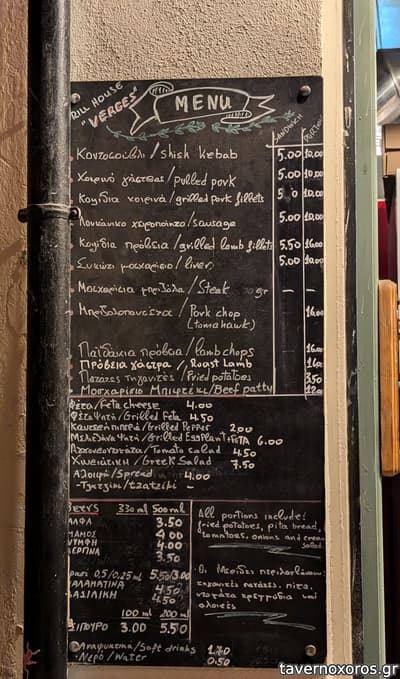 RILL HOUSE
"VERGES"
MENU
SANDWICH
Κοντοσούβλι / shish kebab 5.00 10.00
Χοιρινό γάστρας / pulled pork 5.00 10.00
Καλίδια χοιρινά / grilled pork fillets 10.00
Λουκάνικο χωροποίητο / sausage 5.00 10.00
Καλίδια πρόβεια / grilled lamb fillets 5.50 16.00
Συκώτι μοσχαρίσιο / liver 5.00 10.00
Μοσχαρίσια μπριζόλα / Steak gr - -
Μπριζολοπανσέτα / Pork chop 16.00
(tomahawk)
Παϊδάκια πρόβεια / lamb chops
Πρόβεια γάστρα / Roast Lamb
Πατάτες τηγανιτές / Fried potatoes 3.50
Μοσχαρίσιο Μπιφτέκι / Beef patty
Φέτα / Feta cheese 4.00
Φέτα ψητή / Grilled Feta 4.50
Καυτερή πιπεριά / Grilled Pepper 2.00
Μελιτζάνα Ψητή / Grilled Eggplant + FETA 6.00
/ Tomato salad 4.50
Χωριάτικη / Greek Salad 7.50
Αλοιφή / Spread 4.00
-Τζατζίκι / Tzatziki -
BEERS 330 ml 500 ml
ΑΛΦΑ 3.50
ΜΑΜΟΣ 4.00
ΝΥΜΦΗ 4.00
ΒΕΡΓΙΝΑ 3.50
0,5/0,25 ml 5.50/3.00
ΜΑΛΑΜΑΤΙΝΑ 4.50
ΒΑΣΙΛΙΚΗ 4.50
100 ml 200 ml
ΤΣΙΠΟΥΡΟ 3.00 5.50
-Αναψυκτικά / Soft drinks 1.70
-Νερό / Water 0.50
All portions include:
fried potatoes, pita bread,
tomatoes, onions and cream
salad
-Οι Μερίδες περιλαμβάνουν:
τηγανιτές πατάτες, πίτα,
ντομάτα κρεμμύδια και
αλοιφές
tavernoxoros.gr